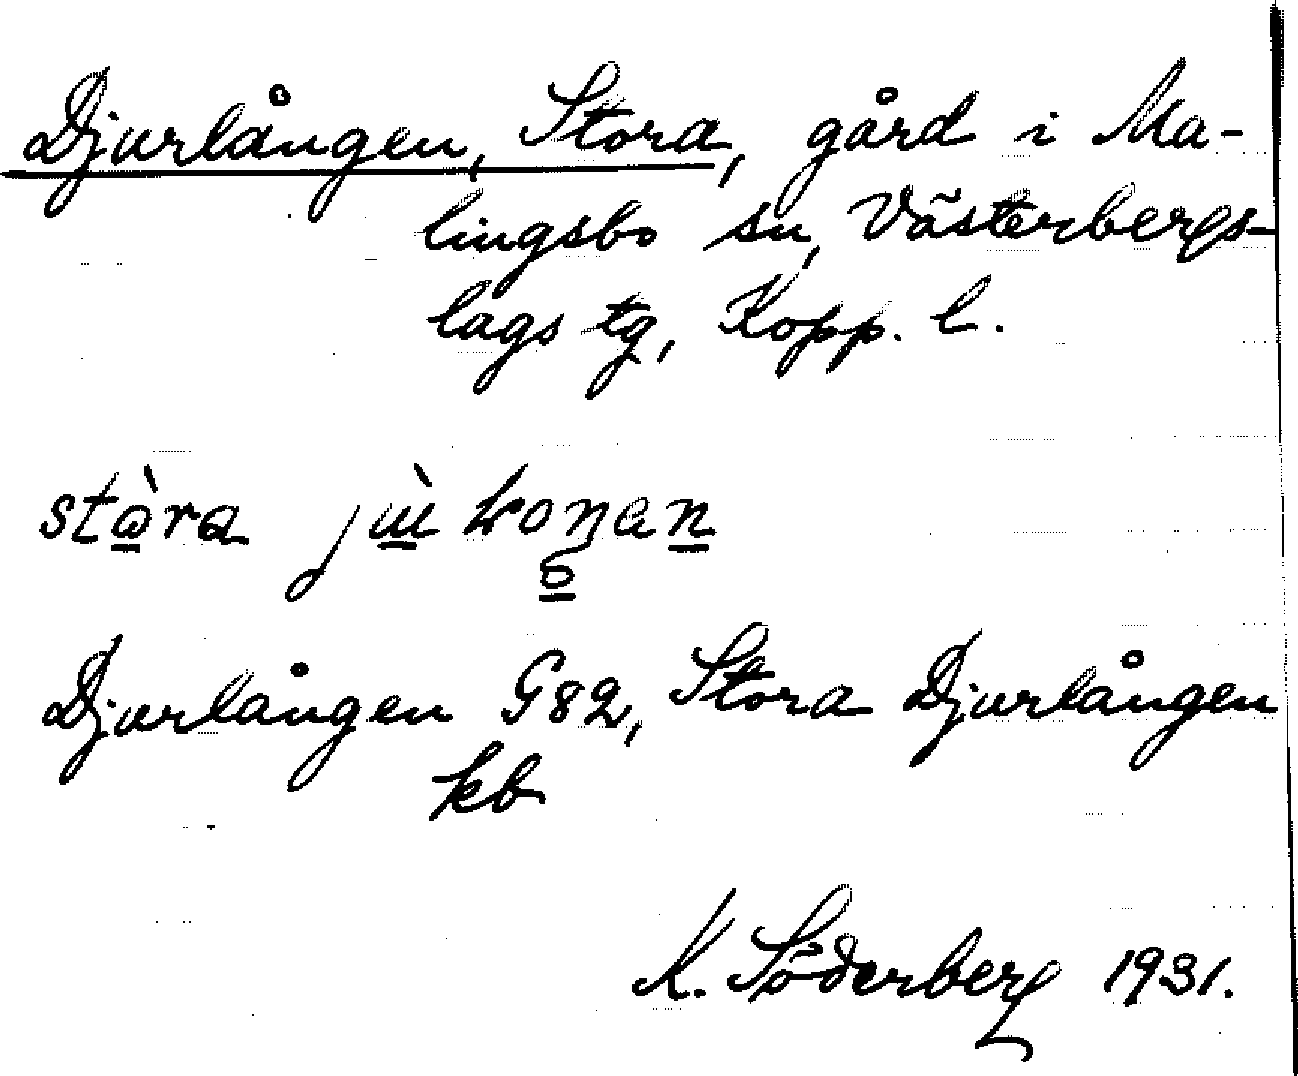 Djurlången, Stora, gård i Ma-
lingsbo sn, Västerbergs-
lags tg, Kopp. l.
stòra
Djurlången G82, Stora Djurlången
kb
K. Söderberg 1931.